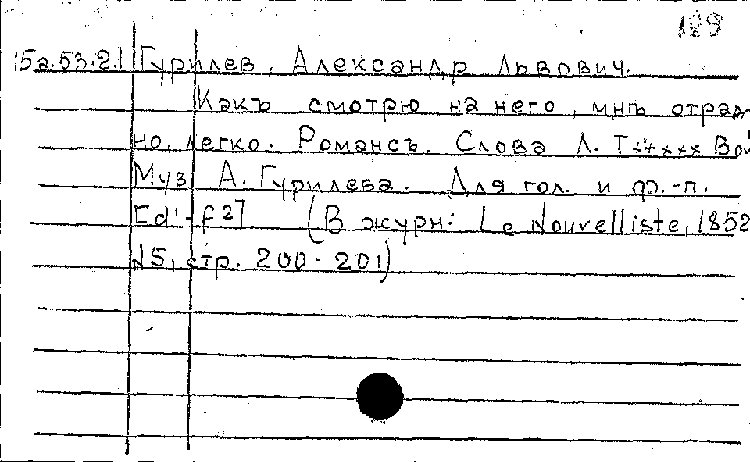 129
15а.53.2.1 Гурилев, Александр Львович.
Какъ смотрю на него, мнѣ отрад
но, легко. Романсъ. Слова Л. Т××××× Вой
Муз А. Гурилева. Для гол. и ф.-п.
[d'-f²] (В журн: Le Nouvelliste, 1852
№5, стр. 200-201)